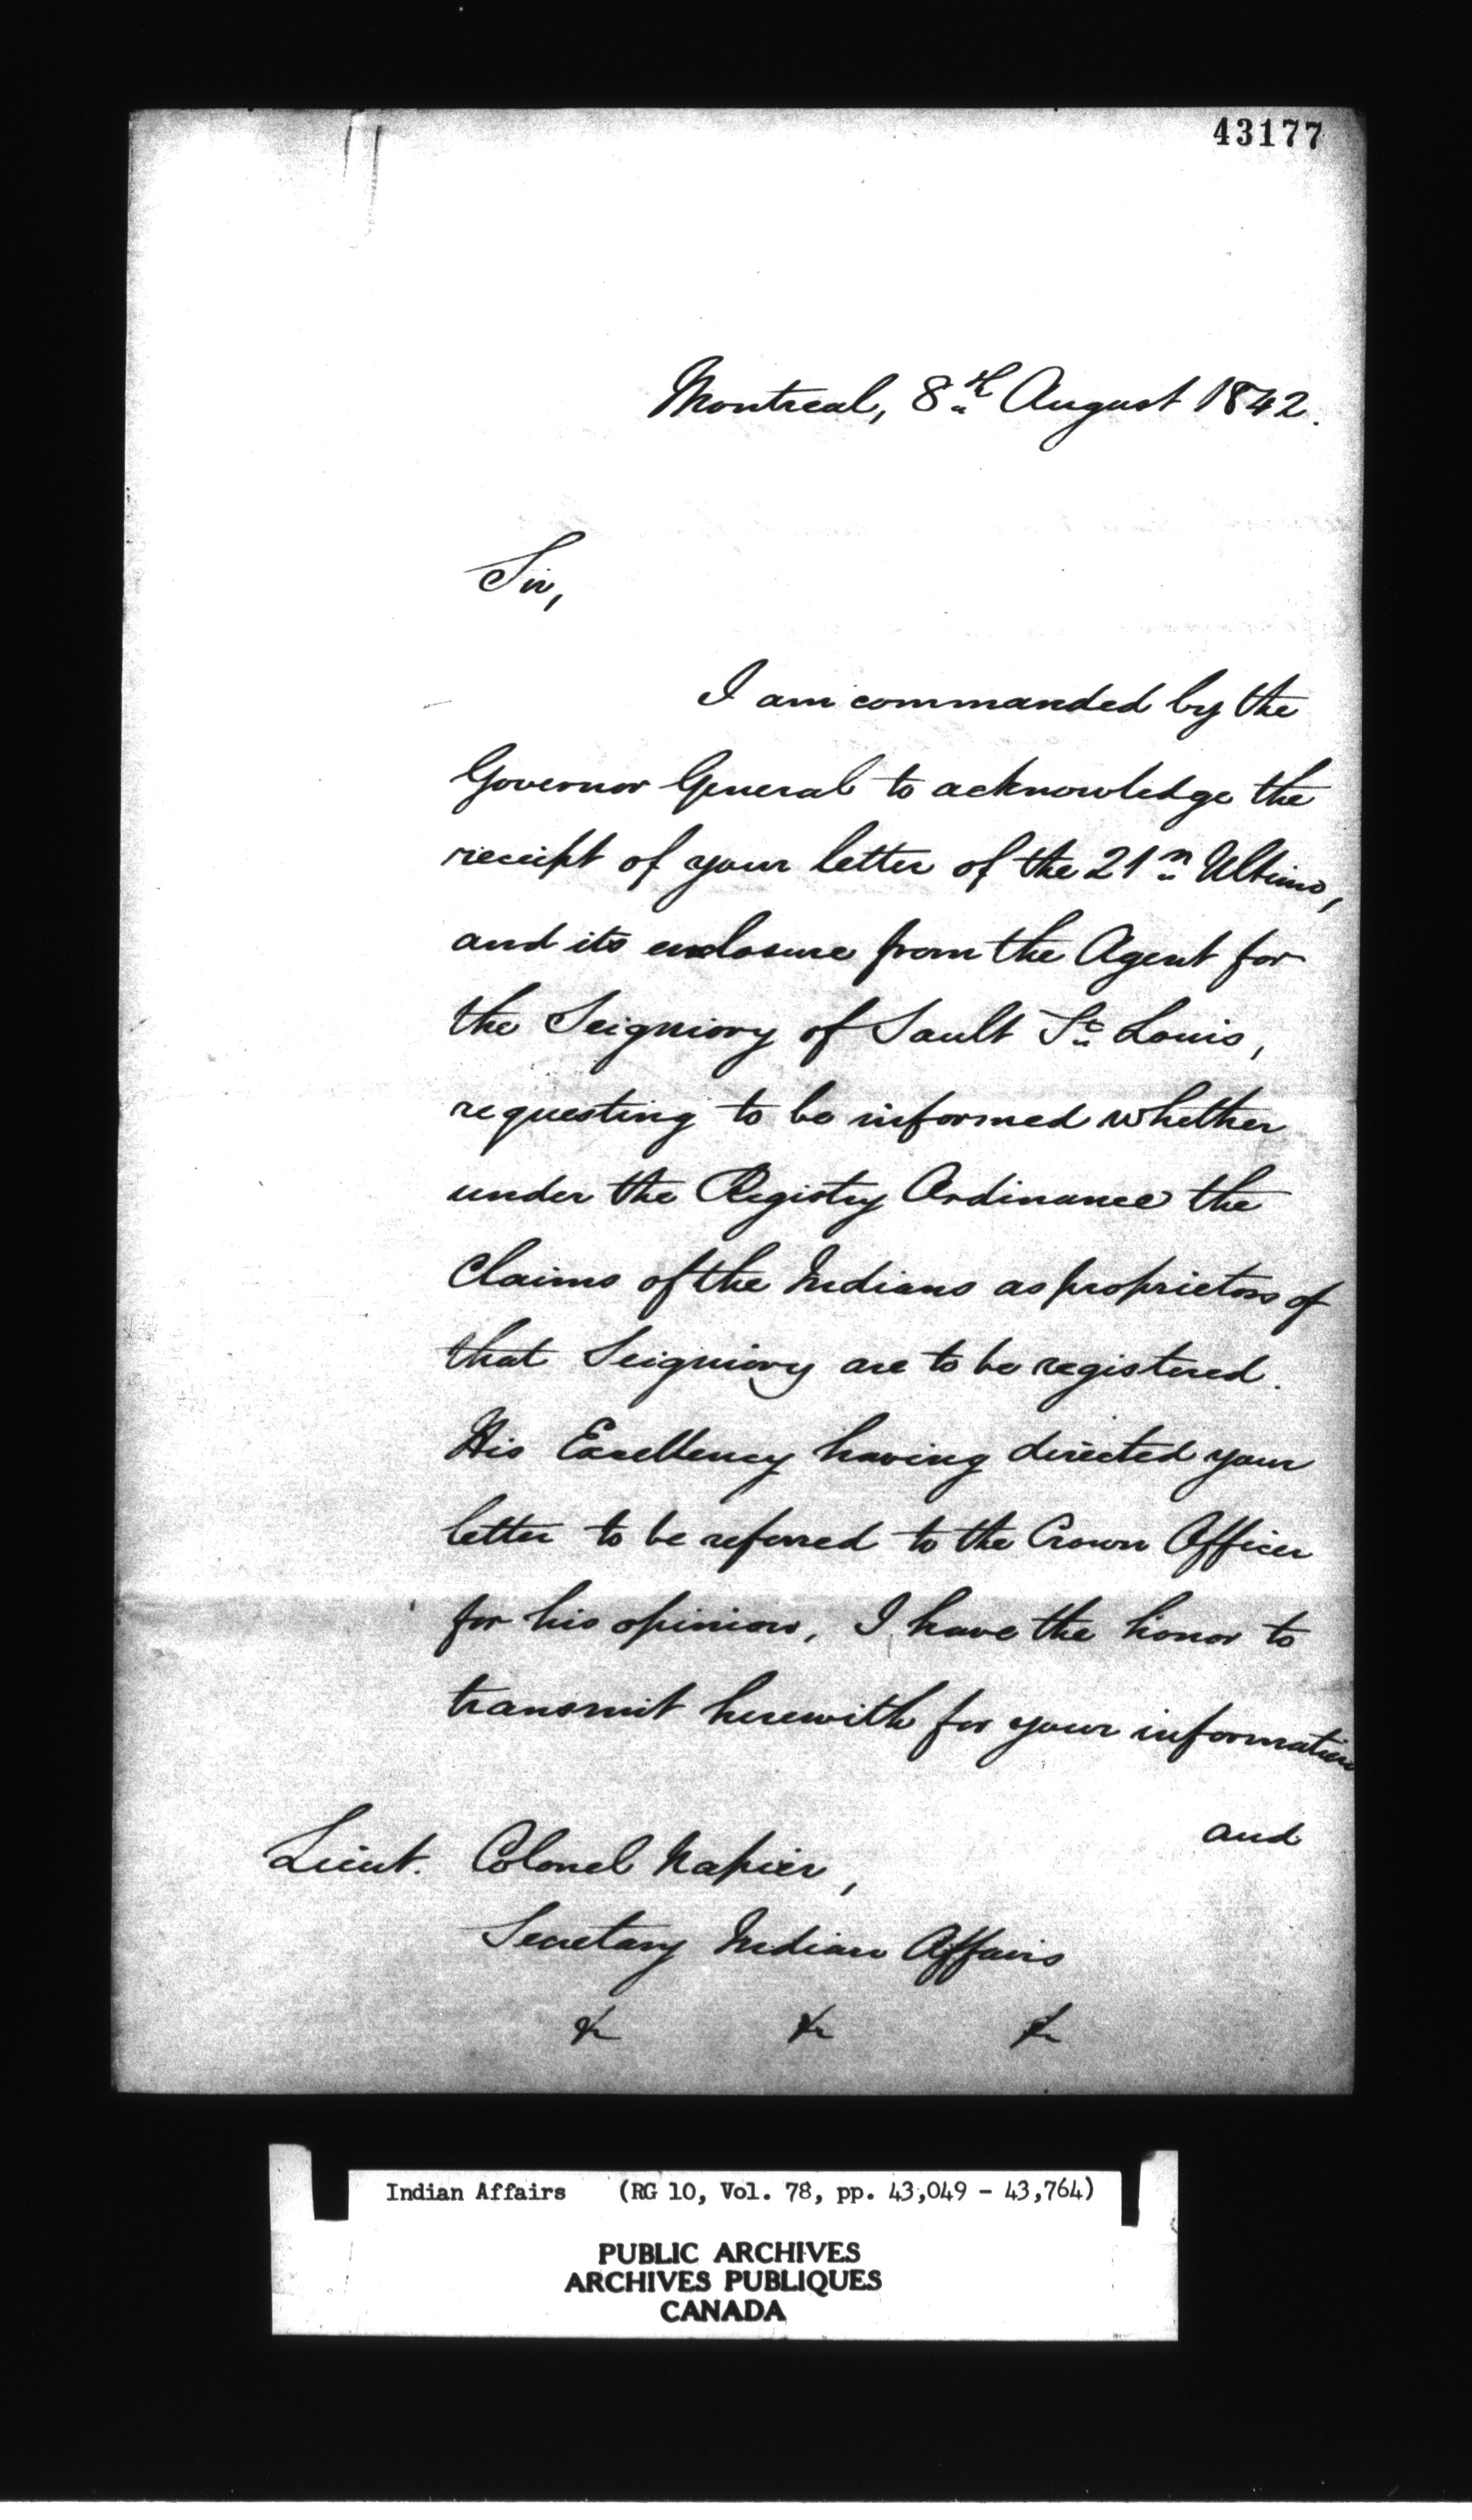 43177
Montreal, 8th August 1842.
Sir,
I am commanded by the
Governor General to acknowledge the
receipt of your letter of the 21st Ultimo,
and its enclosure from the Agent for
the Seigniory of Sault St. Louis,
requesting to be informed whether
under the Registry Ordinance the
Claims of the Indians as proprietors of
that Seigniory are to be registered.
His Excellency having directed your
letter to be referred to the Crown Officer
for his opinion, I have the honor to
transmit herewith for your information
and
Lieut. Colonel Napier,
Secretary Indian Affairs
&c &c &c
Indian Affairs (RG 10, Vol. 78, pp. 43,049 - 43,764)
PUBLIC ARCHIVES
ARCHIVES PUBLIQUES
CANADA